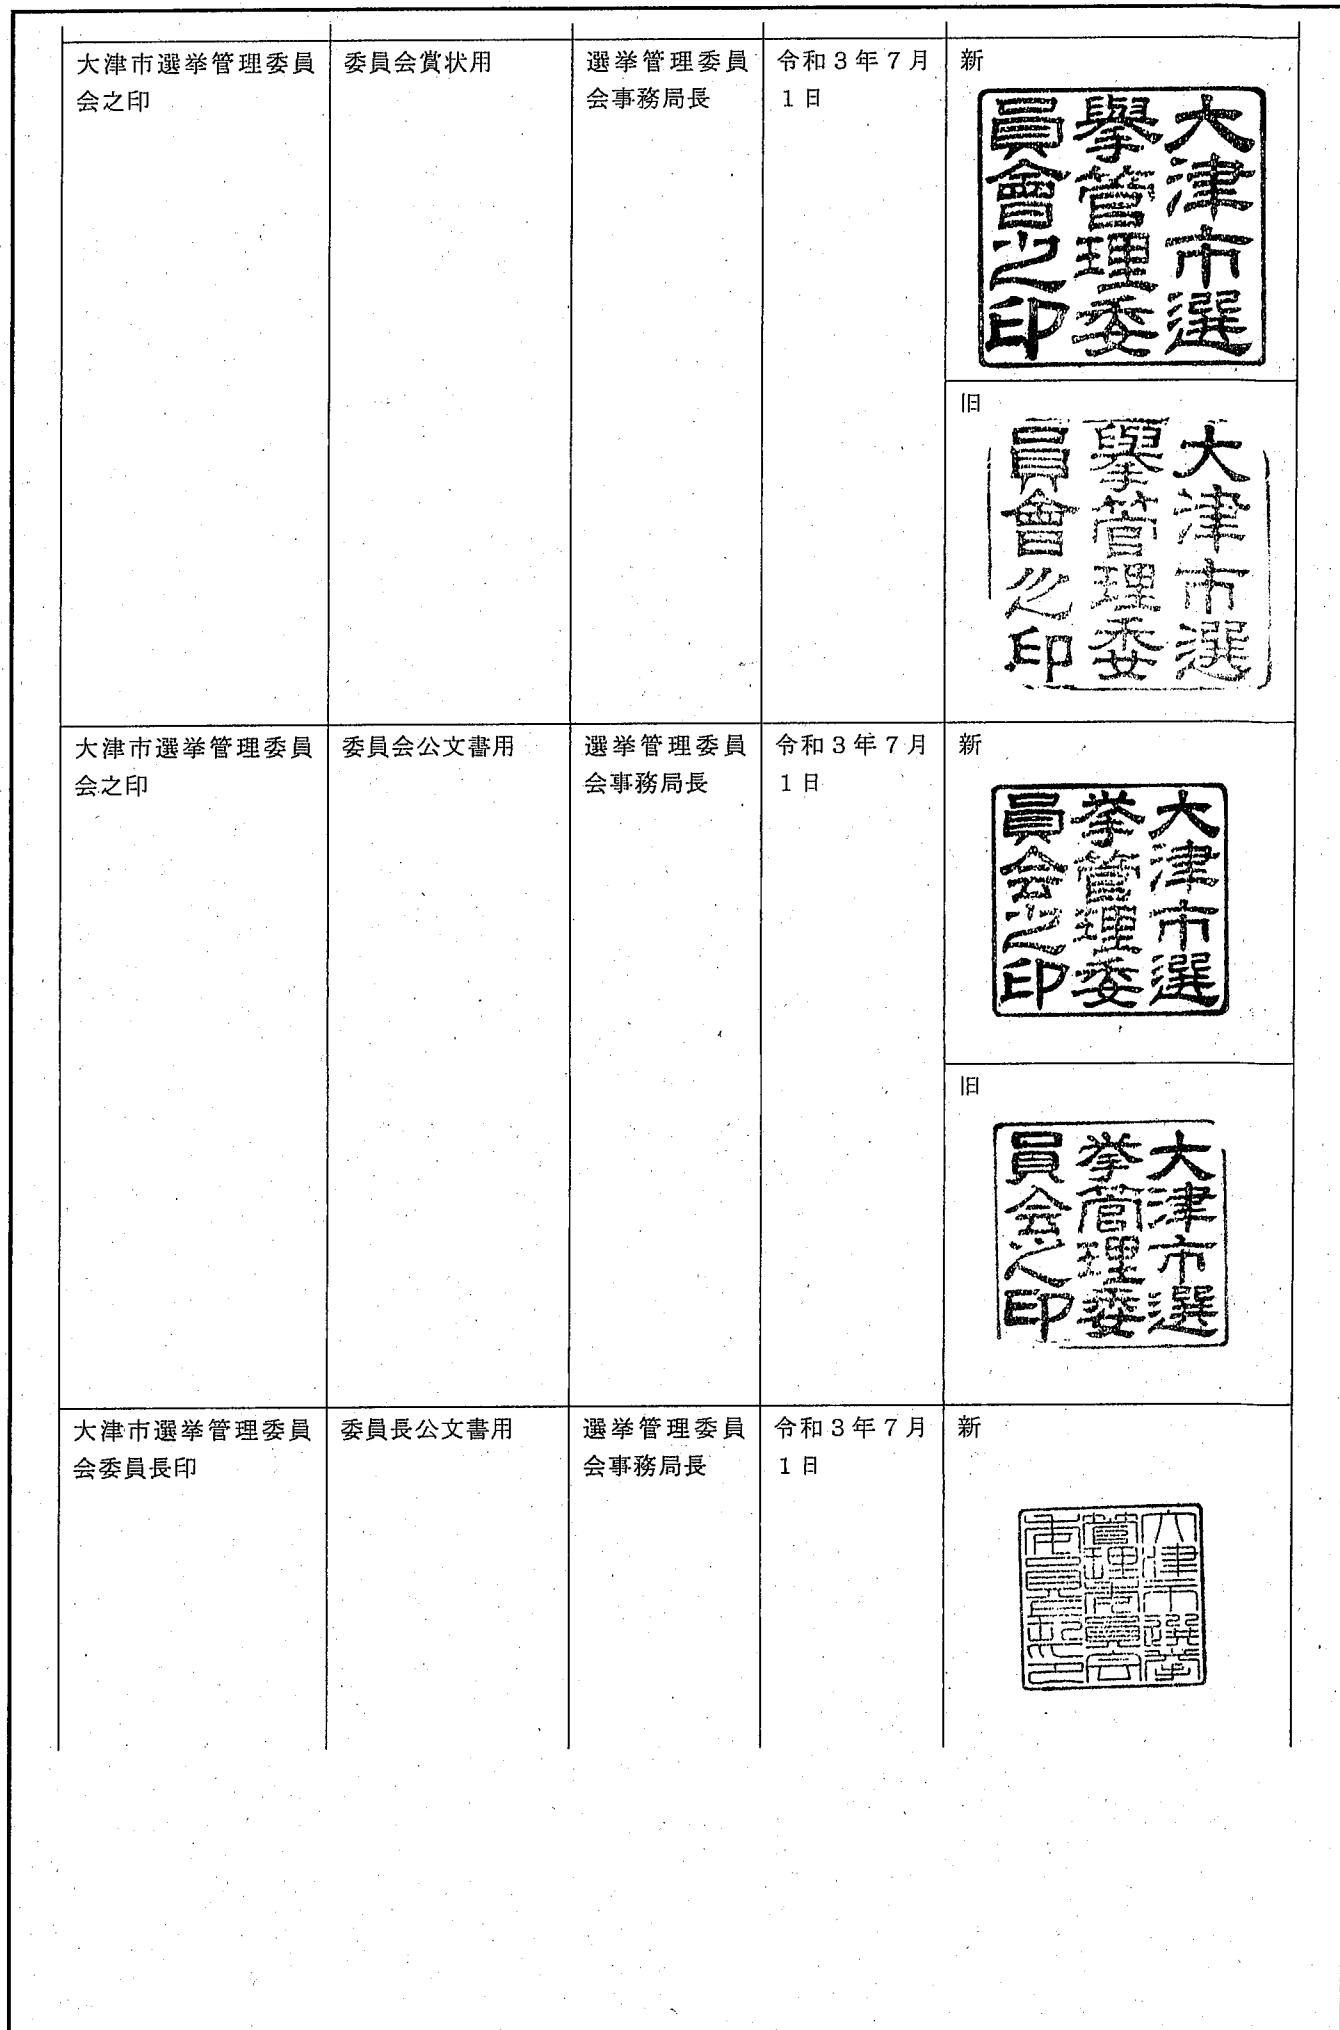 大津市選挙管理委員
会之印
委員会賞状用
選挙管理委員
会事務局長
令和3年7月
1日
新
大津市選
擧管理委
員會之印
旧
大津市選
擧管理委
員會之印
大津市選挙管理委員
会之印
委員会公文書用
選挙管理委員
会事務局長
令和3年7月
1日
新
大津市選
挙管理委
員会之印
旧
大津市選
挙管理委
員会之印
大津市選挙管理委員
会委員長印
委員長公文書用
選挙管理委員
会事務局長
令和3年7月
1日
新
大津市選挙
管理委員会